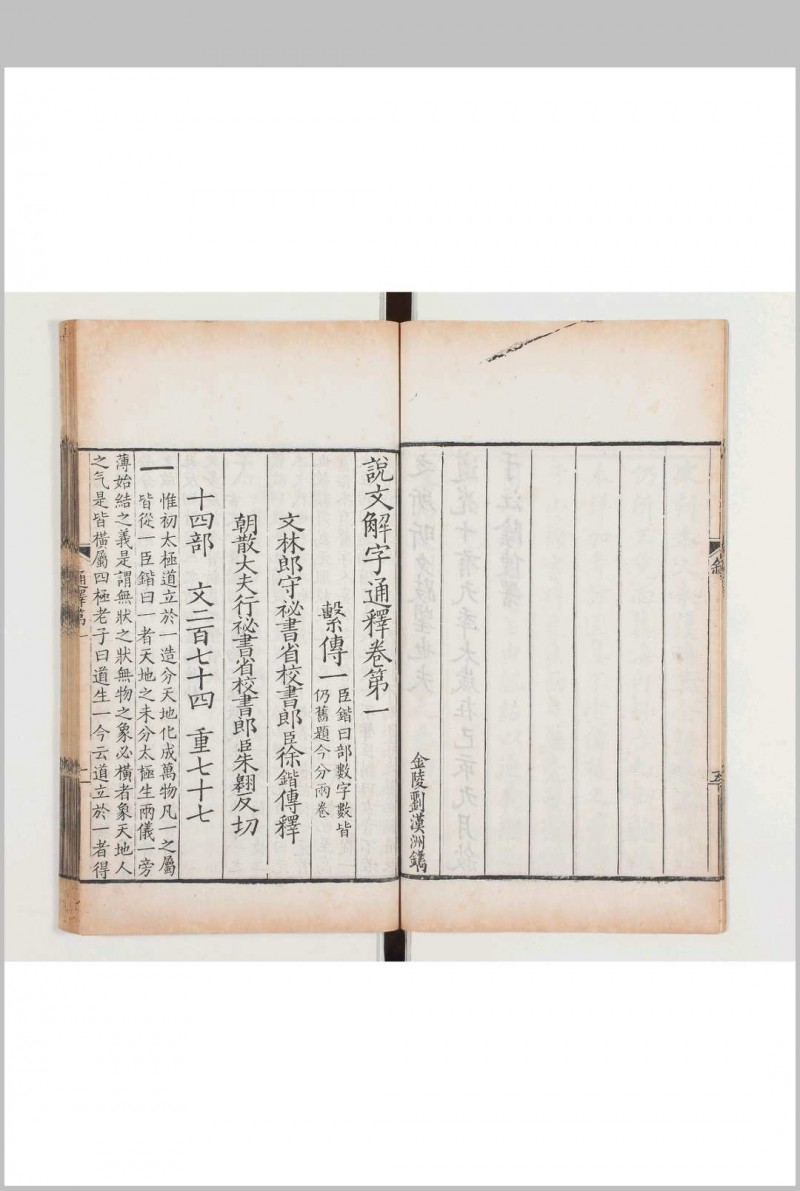 金陵劉漢洲鐫
說文解字通釋卷第一
繫傳一
臣鍇曰部數字數皆
仍舊題今分兩卷
文林郎守祕書省校書郎臣徐鍇傳釋
朝散大夫行祕書省校書郎臣朱翱反切
十四部 文二百七十四 重七十七
一
惟初太極道立於一造分天地化成萬物凡一之屬
皆從一臣鍇曰一者天地之未分太極生兩儀一旁
薄始結之義是謂無狀之狀無物之象必橫者象天地人
之气是皆橫屬四極老子曰道生一今云道立於一者得
通釋第一